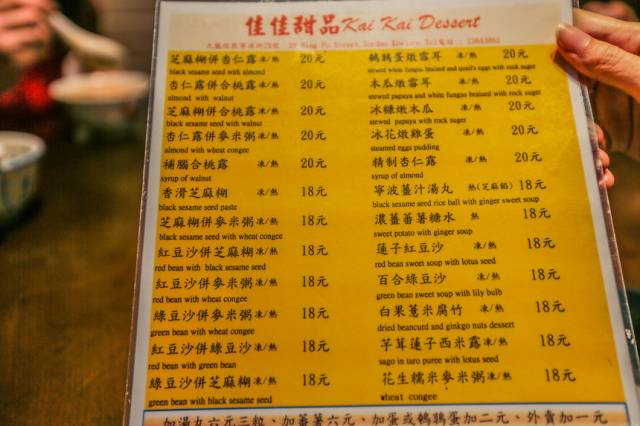 佳佳甜品 Kai Kai Dessert
29 Ning Po Street, Jordan Kowloon, Tel電話: 23843862
芝麻糊併杏仁露 凍/熱 20元
black sesame seed with almond
杏仁露併合桃露 凍/熱 20元
almond with walnut
芝麻糊併合桃露 凍/熱 20元
black sesame seed with walnut
杏仁露併麥米粥 凍/熱 20元
almond with wheat congee
補腦合桃露 凍/熱 20元
syrup of walnut
香滑芝麻糊 凍/熱 18元
black sesame seed paste
芝麻糊併麥米粥 凍/熱 18元
black sesame seed with wheat congee
紅豆沙併芝麻糊 凍/熱 18元
red bean with black sesame seed
紅豆沙併麥米粥 凍/熱 18元
red bean with wheat congee
綠豆沙併麥米粥 凍/熱 18元
green bean with wheat congee
紅豆沙併綠豆沙 凍/熱 18元
red bean with green bean
綠豆沙併芝麻糊 凍/熱 18元
green bean with black sesame seed
鵪鶉蛋燉雪耳 凍/熱 20元
stewed white fungus braised and quail's eggs with rock suger
木瓜燉雪耳 凍/熱 20元
stewed papaya and white fungus braised with rock suger
冰糖燉木瓜 凍/熱 20元
stewed papaya with rock suger
冰花燉雞蛋 凍/熱 20元
steamed eggs pudding
精制杏仁露 凍/熱 20元
syrup of almond
寧波薑汁湯丸 熱(芝麻餡) 18元
black sesame seed rice ball with ginger sweet soup
濃薑蕃薯糖水 熱 18元
sweet potato with ginger soup
蓮子紅豆沙 凍/熱 18元
red bean sweet soup with lotus seed
百合綠豆沙 凍/熱 18元
green bean sweet soup with lily bulb
白果薏米腐竹 凍/熱 18元
dried beancurd and ginkgo nuts dessert
芋茸蓮子西米露 凍/熱 18元
sago in taro puree with lotus seed
花生糯米麥米粥 凍/熱 18元
wheat congee
加湯丸六元三粒、加蕃薯六元、加蛋或鵪鶉蛋加二元、外賣加一元